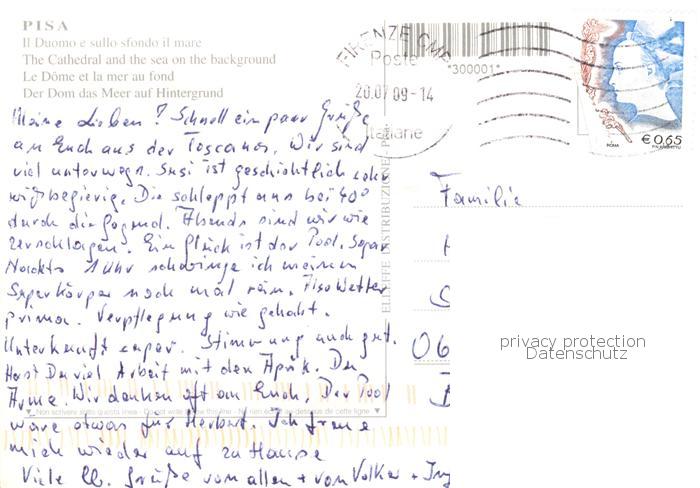 PISA
Il Duomo e sullo sfondo il mare
The Cathedral and the sea on the background
Le Dôme et la mer au fond
Der Dom das Meer auf Hintergrund
FIRENZE CMP
Poste
20.07 09-14
Italiane
*300001*
€ 0,65
ROMA
Meine Lieben! Schnell ein paar Grüße
an Euch aus der Toscana. Wir sind
viel unterwegs. Susi ist geschichtlich sehr
wißbegierig. Die schleppt uns bei 40°
durch die Gegend. Abends sind wir wie
zerschlagen. Ein Glück ist der Pool. Sogar
Nachts 1 Uhr schwinge ich meinen
Superkörper noch mal rein. Also Wetter
prima. Verpflegung wie gehabt.
Unterkunft super. Stimmung auch gut.
Hast Du viel Arbeit mit den Aprik. Du
Arme. Wir denken oft an Euch. Der Pool
wäre etwas für Herbert. Ich freue
mich wieder auf zu Hause
Viele lb. Grüße von allen + von Volker +
Familie
06
privacy protection
Datenschutz
Non scrivere sotto questa linea - Do not write below this line - Ne rien écrire au-dessous de cette ligne